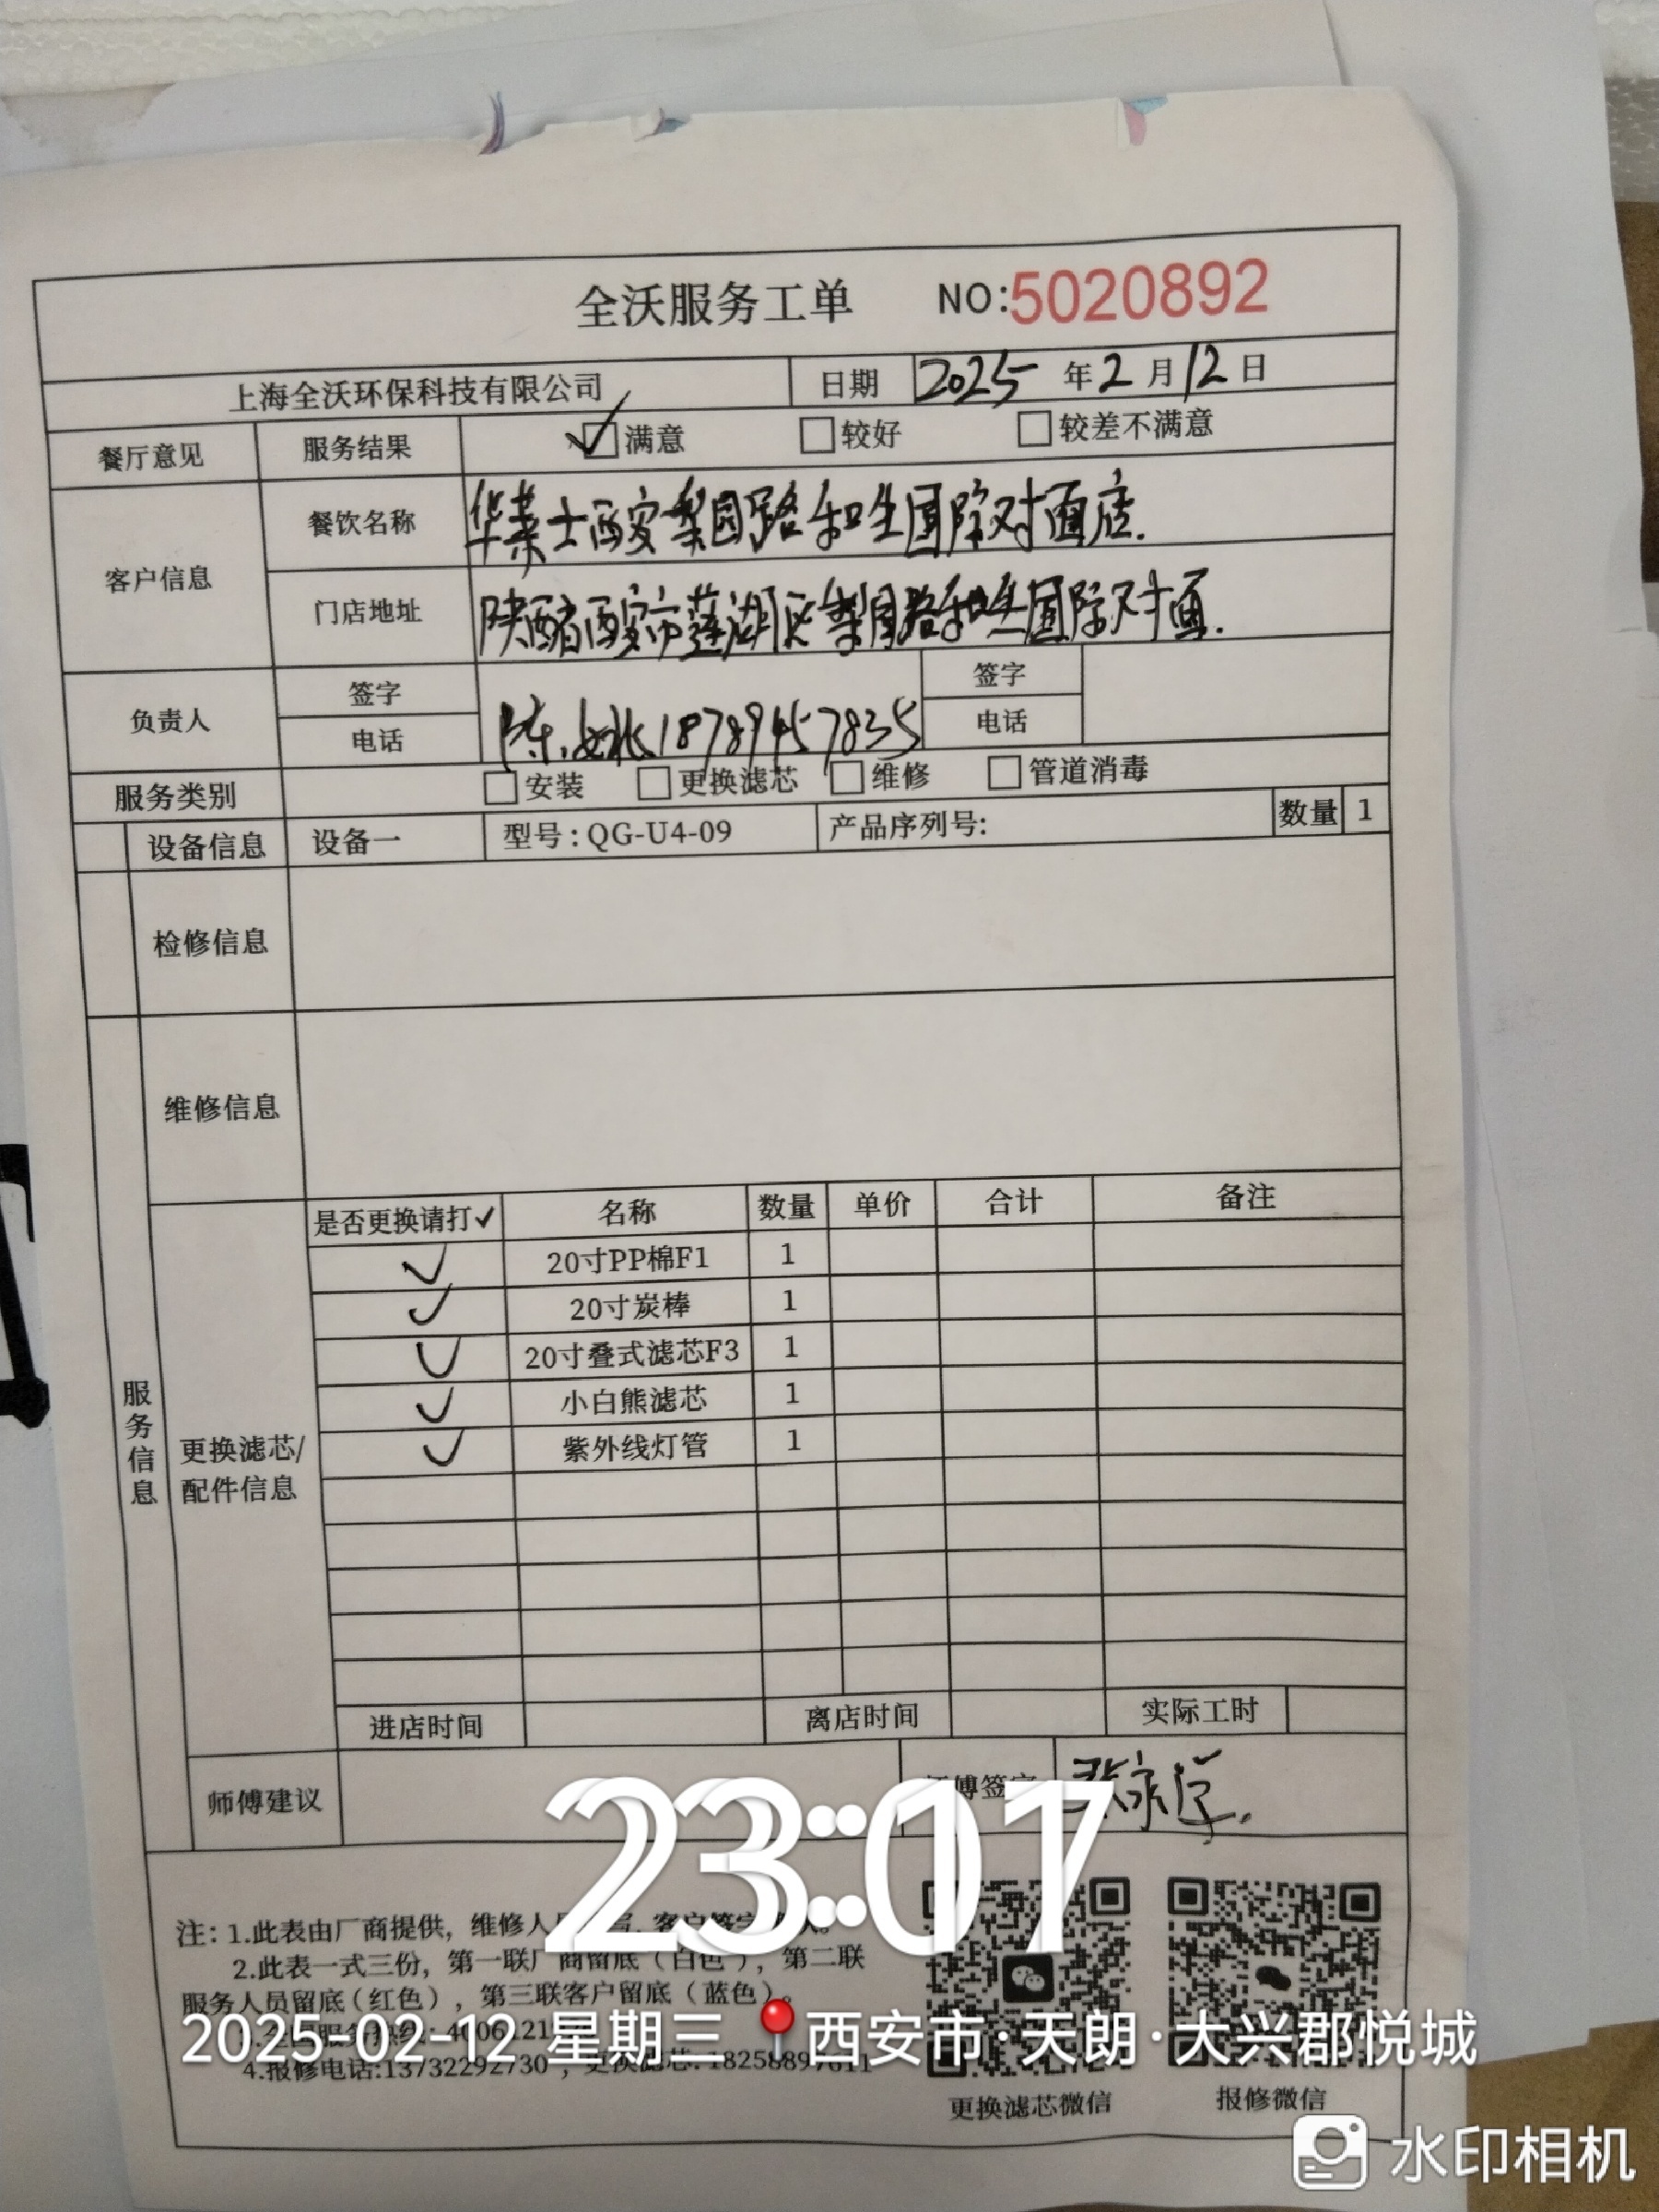 全沃服务工单 NO:5020892
上海全沃环保科技有限公司 日期 2025年2月12日
餐厅意见 服务结果 满意 较好 较差不满意
客户信息 餐饮名称 华莱士西安梨园路和生国际对面店.
门店地址 陕西省西安市莲湖区梨园路和生国际对面.
负责人 签字 签字
电话 陈 18789457835 电话
服务类别 安装 更换滤芯 维修 管道消毒
设备信息 设备一 型号:QG-U4-09 产品序列号: 数量 1
检修信息
维修信息
服务信息
更换滤芯/
配件信息
是否更换请打✓ 名称 数量 单价 合计 备注
✓ 20寸PP棉F1 1
✓ 20寸炭棒 1
✓ 20寸叠式滤芯F3 1
✓ 小白熊滤芯 1
✓ 紫外线灯管 1
进店时间 离店时间 实际工时
师傅建议 师傅签字
23:07
注: 1.此表由厂商提供, 维修人
2.此表一式三份, 第一联厂商留底(白色), 第二联
服务人员留底(红色), 第三联客户留底(蓝色)。
2025-02-12 星期三 西安市·天朗·大兴郡悦城
4.报修电话:13732292730, 更换滤芯:
更换滤芯微信 报修微信
水印相机